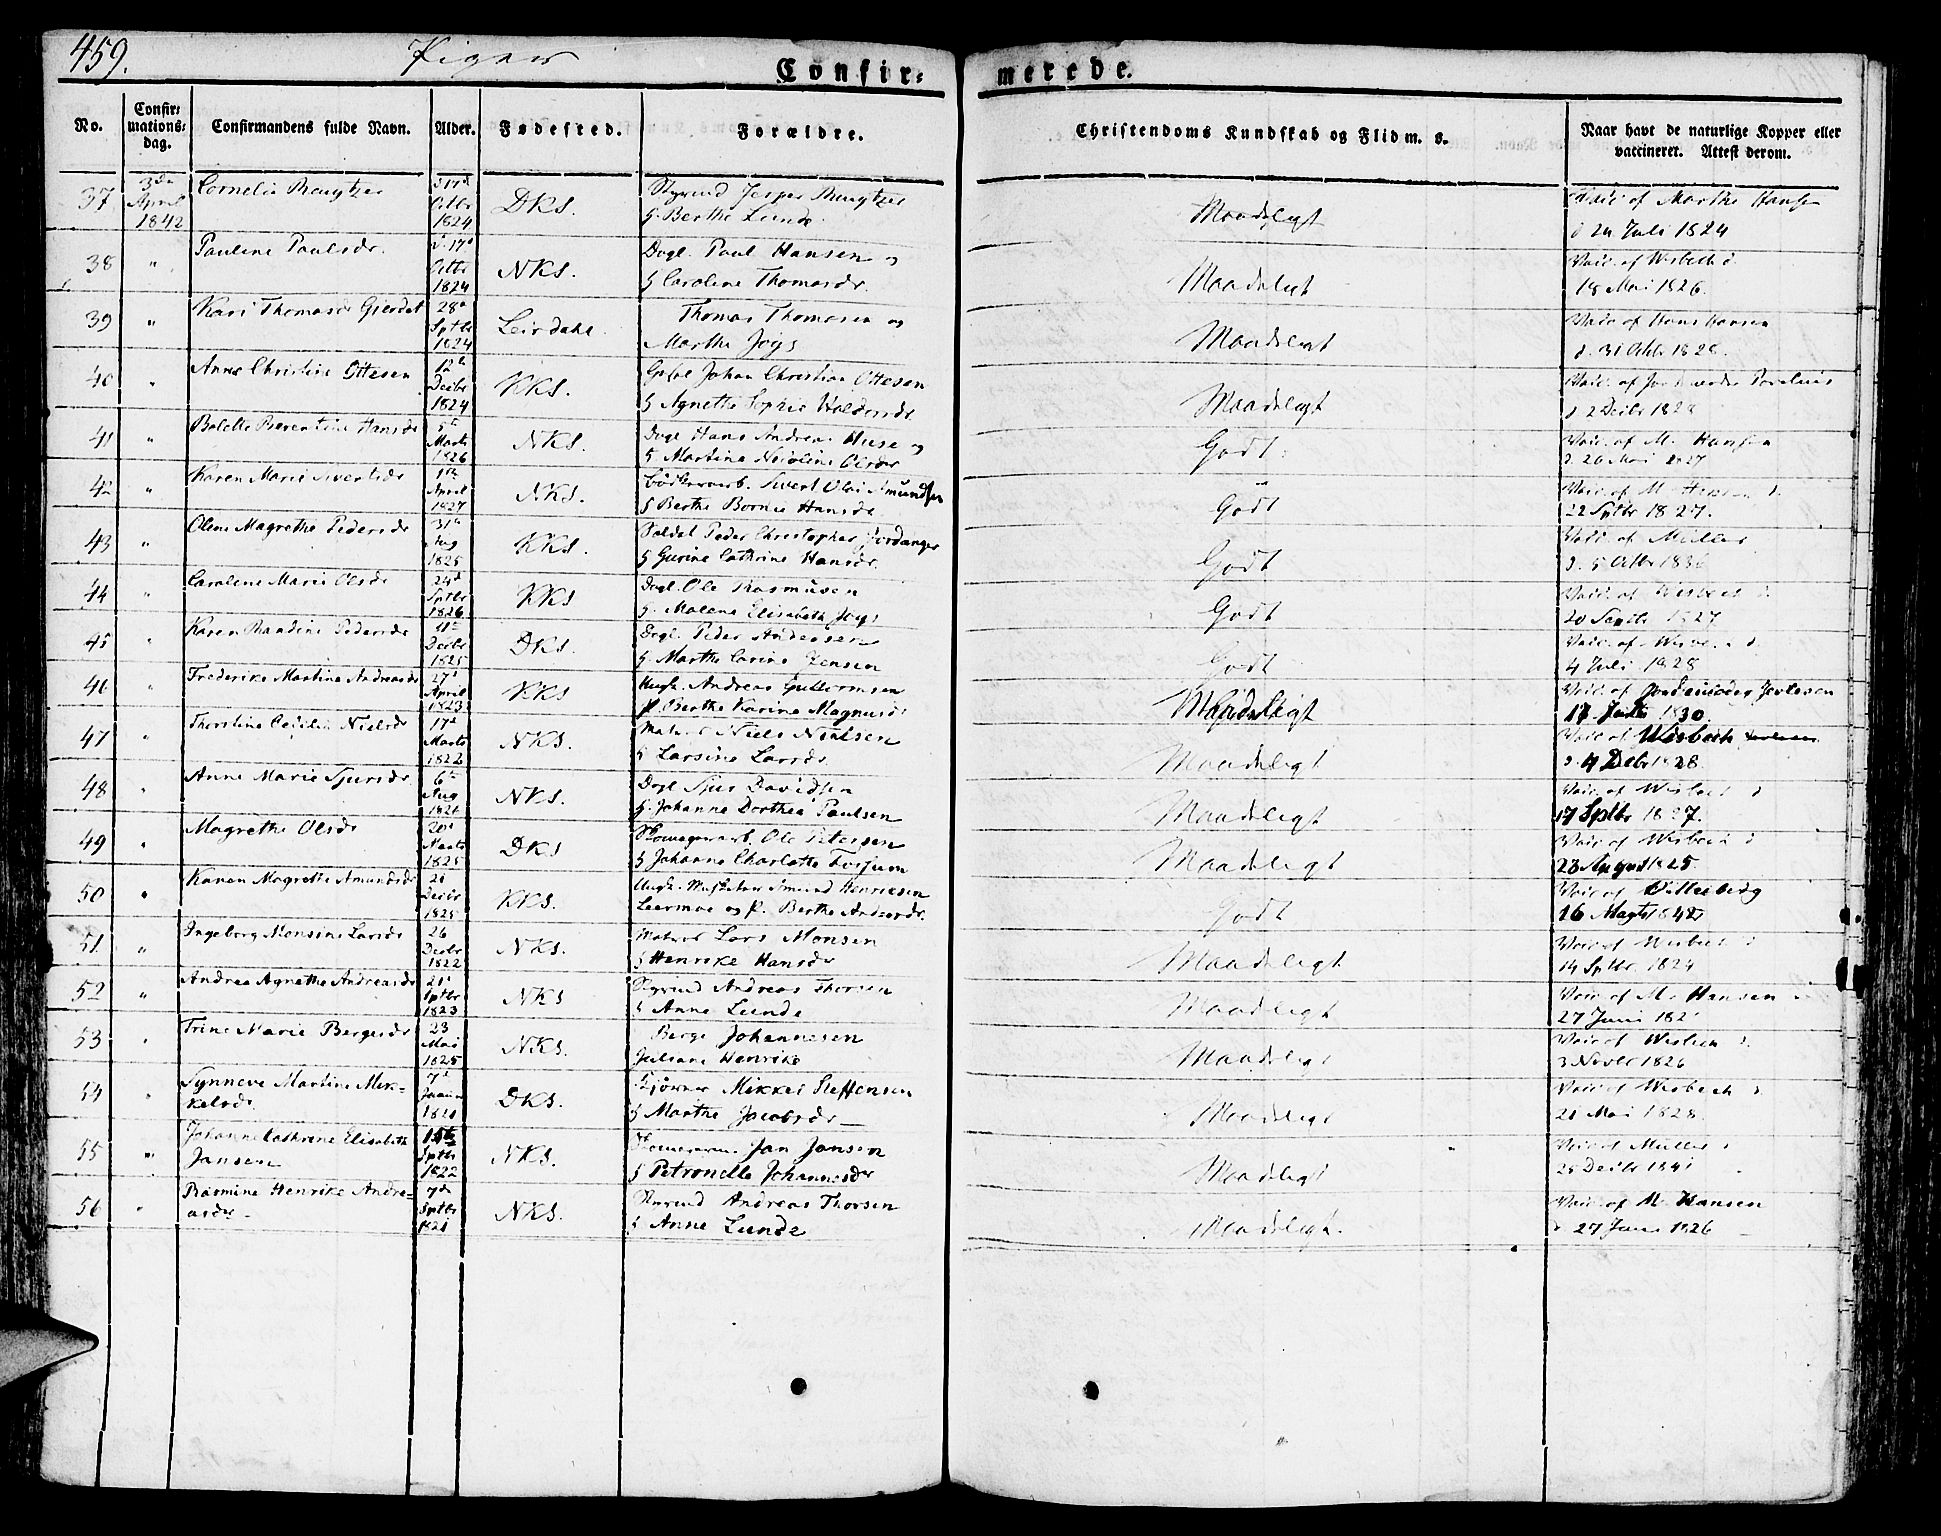 459.
Piger
Confir: merede.
No.
Confir:
mations:
dag.
Confirmandens fulde Navn.
Alder.
Fødested.
Forældre.
Christendoms Kundskab og Flid m. s.
Naar havt de naturlige Kopper eller
vaccineret. Attest derom.
37 3de April 1842 Cornelia d 17d Octbr 1824 DKS. Jesper
& Berthe Lunde.
Maadeligt
Vacc. af Marthe Hansen
d 24 Juli 1824
38 " Pauline Paulsdr. d. 17d Octbr 1824 NKS. Dagl. Paul Hansen og
& Caroline Thomasdr.
Maadeligt
Vacc. af Wisbech d.
18 Mai 1826.
39 " Kari Thomasdr Gjerdet 28d Sptbr 1824 Leirdahl. Thomas Thomasen og
Marthe Joys
Maadeligt
Vacc. af Hans Hansen
d. 31 Octbr 1828.
40 " Anne Christine Ottesen 12te Decbr 1824 KKS. Johan Christian Ottesen
& Agnethe Sophie
Maadeligt
Vacc. af
d 2 Decbr 1828
41 " Bolette Berentine Hansdr 5te Marts 1826 NKS. Dagl Hans Andreas Huse og
& Martina Nicoline Olsdr
Godt.
Vacc. af M. Hansen
d. 20 Mai 1827
42 " Karen Marie Sivertsdr 1ste April 1827 NKS. Bødkersv. Sivert Olai Amundsen
& Berthe Hansdr.
Godt
Vacc. af M. Hansen d.
22 Sptbr 1827.
43 " Oline Magrethe Pedersdr 31d Aug 1825 KKS. Soldat Peder Christopher Jordanger
& Gurine Cathrine Hansdr.
Godt
Vacc. af Müller
d. 5 Octbr 1836
44 " Caroline Marie Olsdr 24d Sptbr 1826 KKS Dagl. Ole Rasmusen
& Malene Elisabeth Joys
Godt
Vacc. af Wisbech d.
20 Septbr 1827
45 " Karen Pedersdr 11te Decbr 1825 DKS. Dagl. Peder Andersen
& Marthe Carine Jensen
Godt
Vacc. af Wisbech d.
4 Juli 1828
46 " Frederike Martine Andreasdr 27d April 1823 KKS Andreas Guttormsen
P. Berthe Karine Magnusdr
Maadeligt
Vacc. af
17 1830.
47 " Thorstine Nielsdr 17d Marts 1822 NKS. Matr. Niels Nielsen
& Larsine Larsdr.
Maadeligt
Vacc. af Wisbech
d. 4 Debr 1828.
48 " Anne Marie Sjursdr 6te Aug 1824 NKS. Dagl Sjur Davidsen
& Johanne Dorthea Paulsen
Maadeligt
Vacc. af Wisbech d
17 Sptbr 1827.
49 " Magrethe Olsdr 20d Marts 1825 DKS Skomagersv. Ole Petersen
& Johanne Charlotte Forsjum
Maadeligt
Vacc af Wisbech d
23 August 1825
50 " Karen Magrethe Amundsdr 21 Decbr 1825 KKS. Amund Henriksen
Leermoe og P. Berthe Andersdr.
Godt
Vacc af
16 Magts 1842
51 " Ingeborg Monsine Larsdr 26 Decbr 1822 NKS. Matros Lars Monsen
& Henrike Hansdr
Maadeligt
Vacc af Wisbech d
14 Sptbr. 1824
52 " Andrea Agnethe Andreasdr 21d Sptbr 1823 NKS Andreas Thorsen
& Anne Lunde
Maadeligt
Vacc af M. Hansen d
27 Juni
53 " Trine Marie Bergesdr 23 Mai 1825 NKS. Berge Johannesen
Juliane Henrike
Maadeligt
Vacc. af Wisbech d.
3 Novbr 1826
54 " Synneve Martine Mik-
kelsdr. 7d DKS. Mikkel Steffensen
& Marthe Jacobsdr
Maadeligt
Vacc af Wisbech d
21 Mai 1828.
55 " Johanne Cathrine Elisabeth
Jansen 15te Sptbr 1822 NKS. Jan Jansen
& Petronelle Johannesdr
Maadeligt
Vacc af Müller d
25 Decbr 1841
56 " Rasmine Henrike Andre-
asdr 7de Sptbr 1821 NKS. Andreas Thorsen
& Anne Lunde
Maadeligt.
Vacc. af M. Hansen
d 27 1826